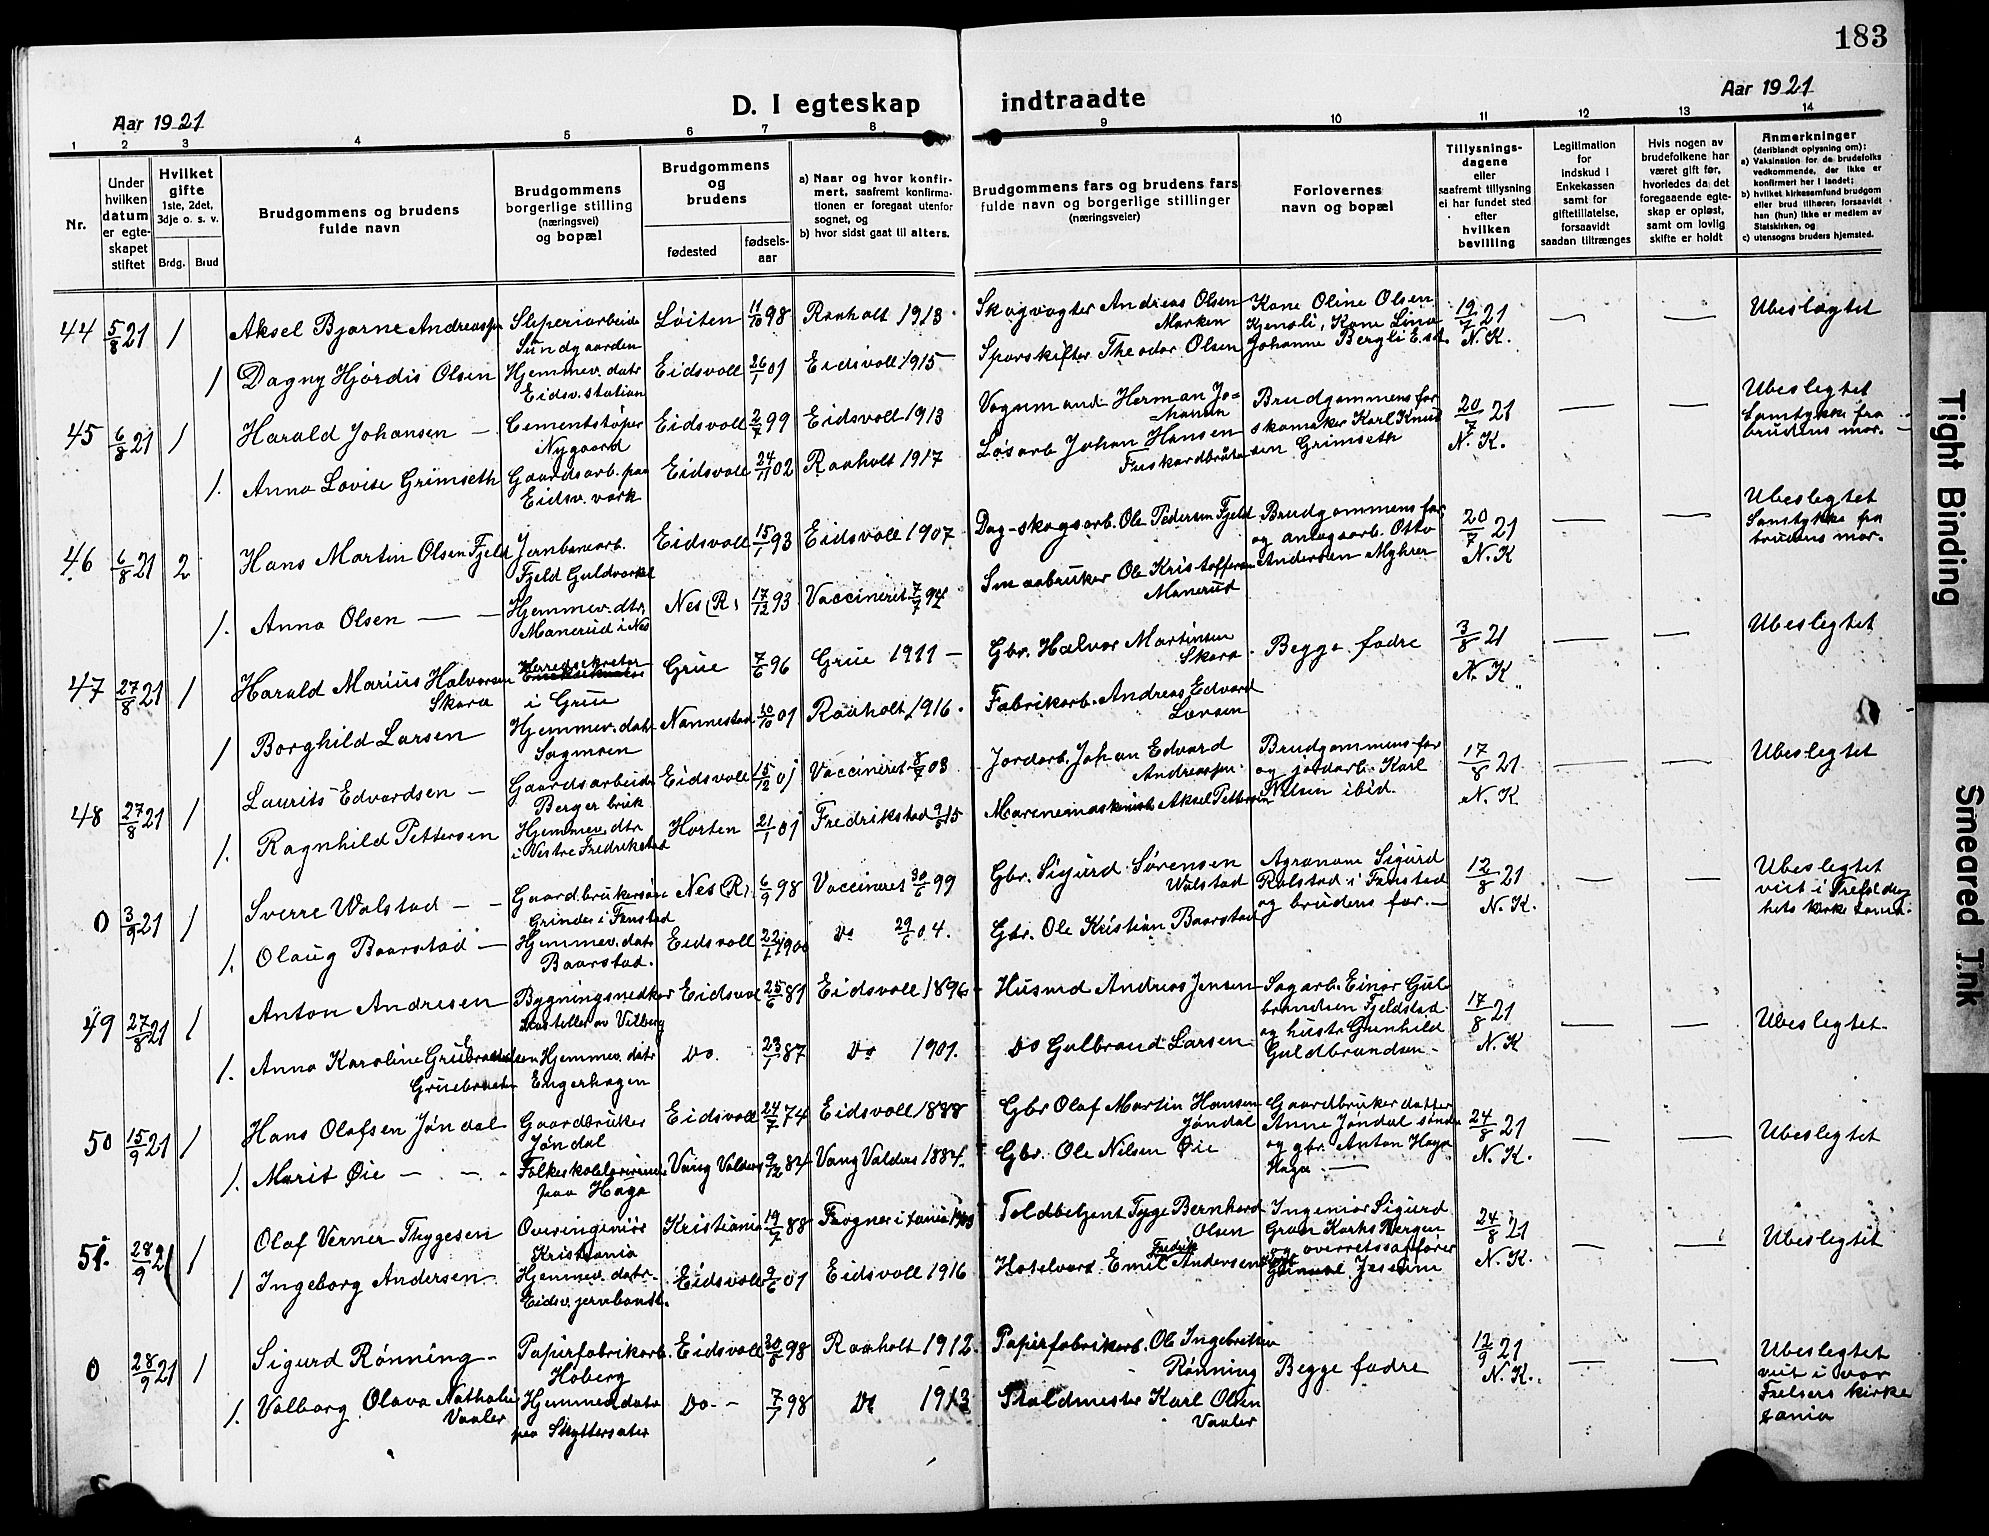 183
D. I egteskap indtraadte
Aar 1921
Aar 1921
1 2 3 4 5 6 7 8 9 10 11 12 13 14
Nr.
Under hvilken datum er egteskapet stiftet
Hvilket gifte 1ste, 2det, 3dje o. s. v.
Brdg. Brud
Brudgommens og brudens fulde navn
Brudgommens borgerlige stilling (næringsvei) og bopæl
Brudgommens og brudens
fødested
fødselsaar
a) Naar og hvor konfirmert, saafremt konfirmationen er foregaat utenfor sognet, og
b) hvor sidst gaat til alters.
Brudgommens fars og brudens fars fulde navn og borgerlige stillinger (næringsveier)
Forlovernes navn og bopæl
Tillysningsdagene eller saafremt tillysning ei har fundet sted efter hvilken bevilling
Legitimation for indskud i Enkekassen samt for giftetillatelse, forsaavidt saadan tiltrænges
Hvis nogen av brudefolkene har været gift før, hvorledes da det foregaaende egteskap er opløst, samt om lovlig skifte er holdt
Anmerkninger (deriblandt oplysning om):
a) Vaksination for de brudefolks vedkommende, der ikke er konfirmert her i landet;
b) hvilket kirkesamfund brudgom eller brud tilhører, forsaavidt han (hun) ikke er medlem av Statskirken, og
c) utensogns bruders hjemsted.
44 5/8 21 1 Aksel Bjarne Andreassen Sliperiarbeide Sundgaarden Løiten 11/10 98 Raaholt 1913 Skogvogter Andreas Olsen Marken Kone Oline Olsen Kjensli, Kone Lina Johanne Bergli E.st. 19/7 21 N.K. — — Ubeslægtet
1 Dagny Hjørdis Olsen Hjemmev. datr Eidsv. station Eidsvoll 26/1 01 Eidsvoll 1915 Sporskifter Theodor Olsen
45 6/8 21 1 Harald Johansen Cementstøper Nygaard Eidsvoll 2/7 99 Eidsvoll 1913 Vognmand Herman Johansen Brudgommens far skomaker Karl Knudsen Grimseth 20/7 21 N.K. — — Ubeslegtet Samtykke fra brudens mor.
1. Anna Lovise Grimseth Gaardsarb. paa Eidsv. værk Eidsvoll 24/11 02 Raaholt 1917 Løsarb Johan Hansen
46 6/8 21 2 Hans Martin Olsen Fjeld Jernbanearb. Fjeld Guldverket Eidsvoll 15/1 93 Eidsvoll 1907 Dag-skogsarb. Ole Pedersen Fjeld Brudgommens far og anlægsarb. Otto Andersen Myhrer 20/7 21 N.K — — Ubeslegtet Samtykke fra brudens mor.
1. Anna Olsen Hjemmev. dtr. Manerud i Nes Nes (R) 17/12 93 Vaccineret 7/7 94 Smaabruker Ole Kristoffersen Manerud
47 27/8 21 1 Harald Marius Halvorsen Skara Herredsekretær i Grue Grue 7/6 96 Grue 1911 Gbr. Halvor Martinsen Skara Begge fædre 3/8 21 N.K — — Ubeslegtet
1 Borghild Larsen Hjemmev. datr Sagmoen Nannestad 20/10 01 Raaholt 1916 Fabrikarb. Andreas Edvard Larsen
48 27/8 21 1 Laurits Edvardsen Gaardsarbeide Berger bruk Eidsvoll 15/12 01 Vaccineret 8/7 03 Jordarb. Johan Edvard Andreassen Brudgommens far og jordarb. Karl Nilsen ibid. 17/8 21 N.K — — Ubeslegtet
1. Ragnhild Pettersen Hjemmev. dtr i Vestre Fredrikstad Horten 21/1 01 Fredrikstad 9/5 15 Marinemaskinist Aksel Pettersen
0 3/9 21 1 Sverre Walstad Gaardbrukersøn Grinder i Fenstad Nes (R) 6/9 98 Vaccineret 30/6 99 Gbr. Sigurd Sørensen Walstad Agronom Sigurd Ralstad i Fenstad og brudens far. 12/8 21 N.K. — — Ubeslegtet viet i Trefoldighets kirke
1. Olaug Baarstad Hjemmev. datr Baarstad. Eidsvoll 22/1 1900 Do 29/6 04. Gbr. Ole Kristian Baarstad
49 27/8 21 1 Anton Andresen Bygningsnedker Eidsvol 25/6 81 Eidsvoll 1896 Husmd Andreas Jensen Sagarb. Einar Gulbrandsen Fjeldstad og hustr Gunhild Guldbrandsen 17/8 21 N.K — — Ubeslegtet
1. Anna Karoline Gruebraaten Hjemmev. datr Engerhagen Do. 23/1 87 Do 1901. Do Gulbrand Larsen
50 15/9 21 1 Hans Olafsen Jøndal Gaardbruker Jøndal Eidsvoll 24/7 74 Eidsvoll 1888 Gbr Olaf Martin Hansen Jøndal Gaardbrukerdatter Anne Jøndal søndre og gbr. Anton Haga Haga 24/8 21 N.K. — — Ubeslegtet
1. Marit Øie Folkeskolelærerinne paa Haga Vang Valders 9/12 84 Vang Valders Gbr. Ole Nilsen Øie
51. 28/9 21 1 Olaf Verner Thygesen Overingeniør Kristiania Kristiania 19/7 88 Frogner i Toldbetjent Tyge Bernhard Olsen Ingeniør Sigurd Bergen og overretssagfører 24/8 21 N.K. — — Ubeslegtet
1 Ingeborg Andersen Hjemmev. datr. Eidsv. jernbanest. Eidsvoll 9/6 01 Eidsvoll 1916 Hotelvært Emil Fredrik Andersen
0 28/9 21 1 Sigurd Rønning Papirfabrikarb. Høberg Eidsvoll 30/8 98 Raaholt 1912 Papirfabrikarb. Ole Ingebretsen Rønning Begge fædre 12/9 21 N.K. — — Ubeslegtet viet i vor Frelsers kirke
1. Valborg Olava Nathalie Vaaler Hjemmev. datr paa Skyttersæter Do 7/7 98 Do 1913 Staldmester Karl Olsen Vaaler
Tight Binding
Smeared Ink